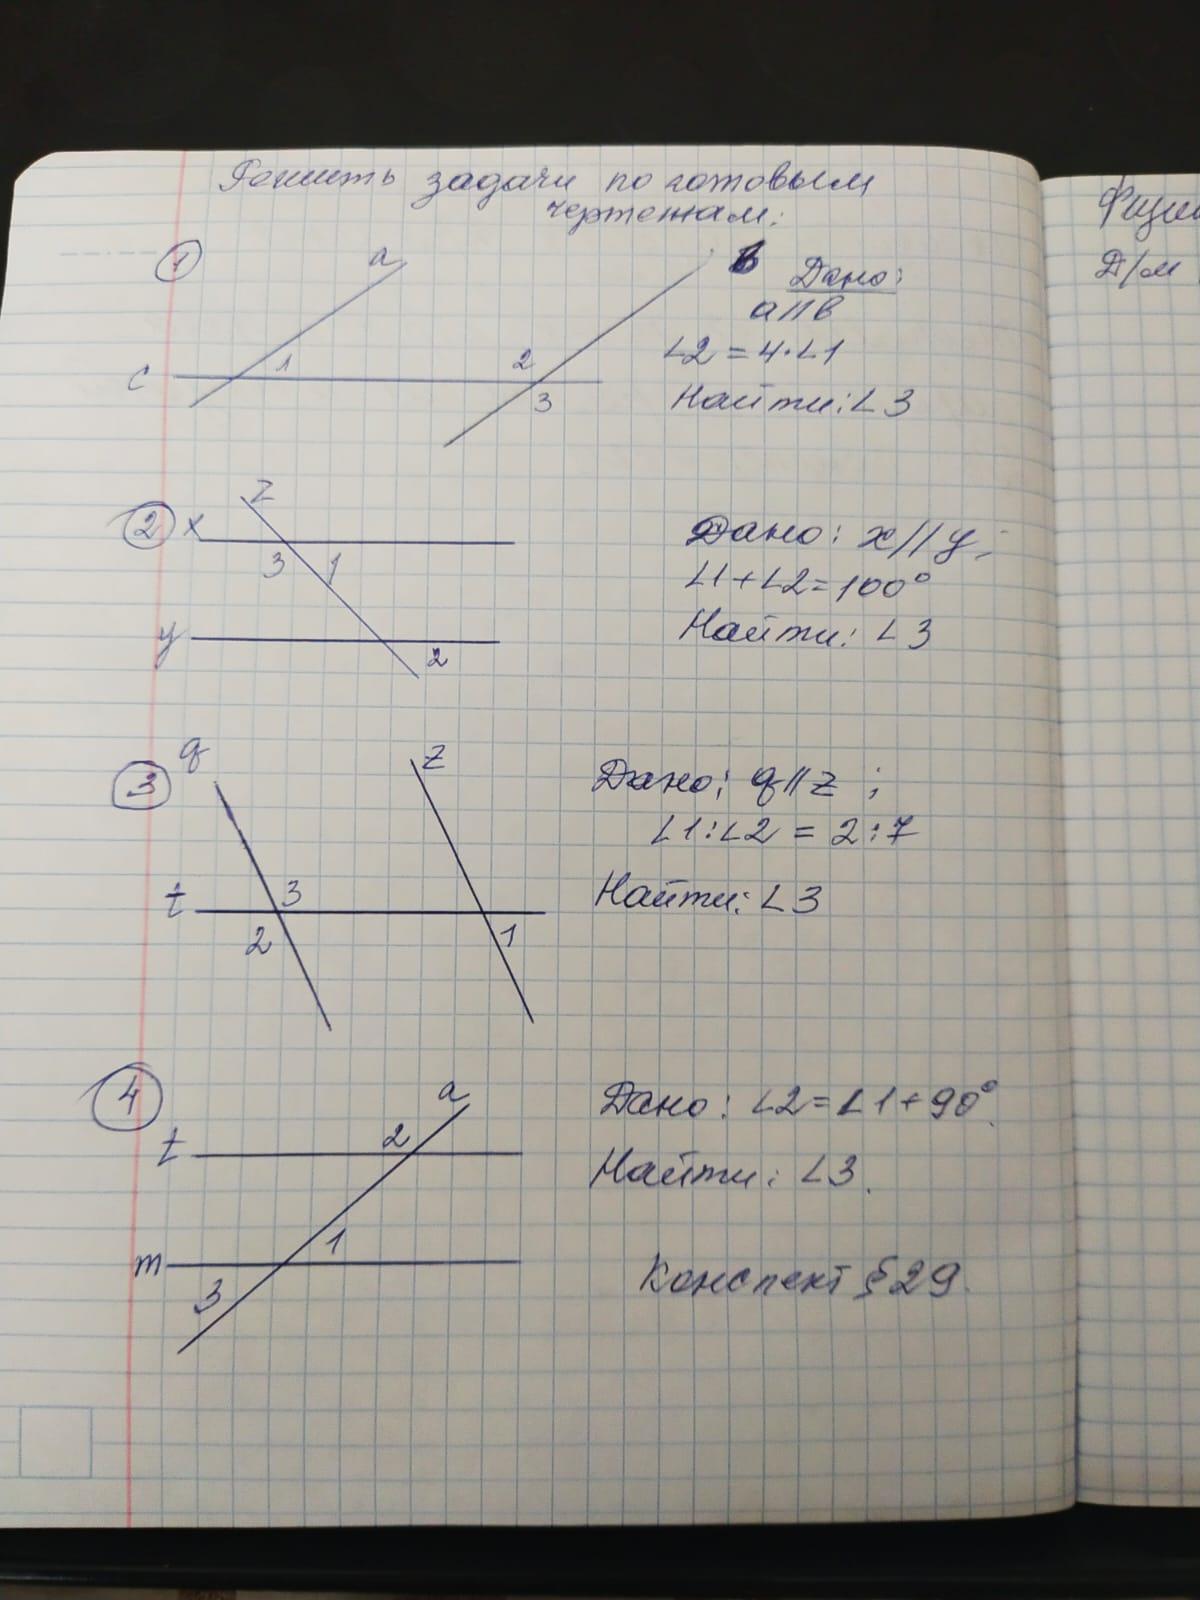 Решить задачи по готовым
чертежам:
1
a
в
c
1
2
3
Дано:
a//в
∠2 = 4·∠1
Найти: ∠3
2
z
x
3
1
y
2
Дано: x//y;
∠1+∠2=100°
Найти: ∠3
3
q
z
t
3
2
1
Дано: q//z ;
∠1:∠2 = 2:7
Найти: ∠3
4
a
t
2
1
m
3
Дано: ∠2=∠1+90°.
Найти: ∠3.
Конспект §29.
Д/м